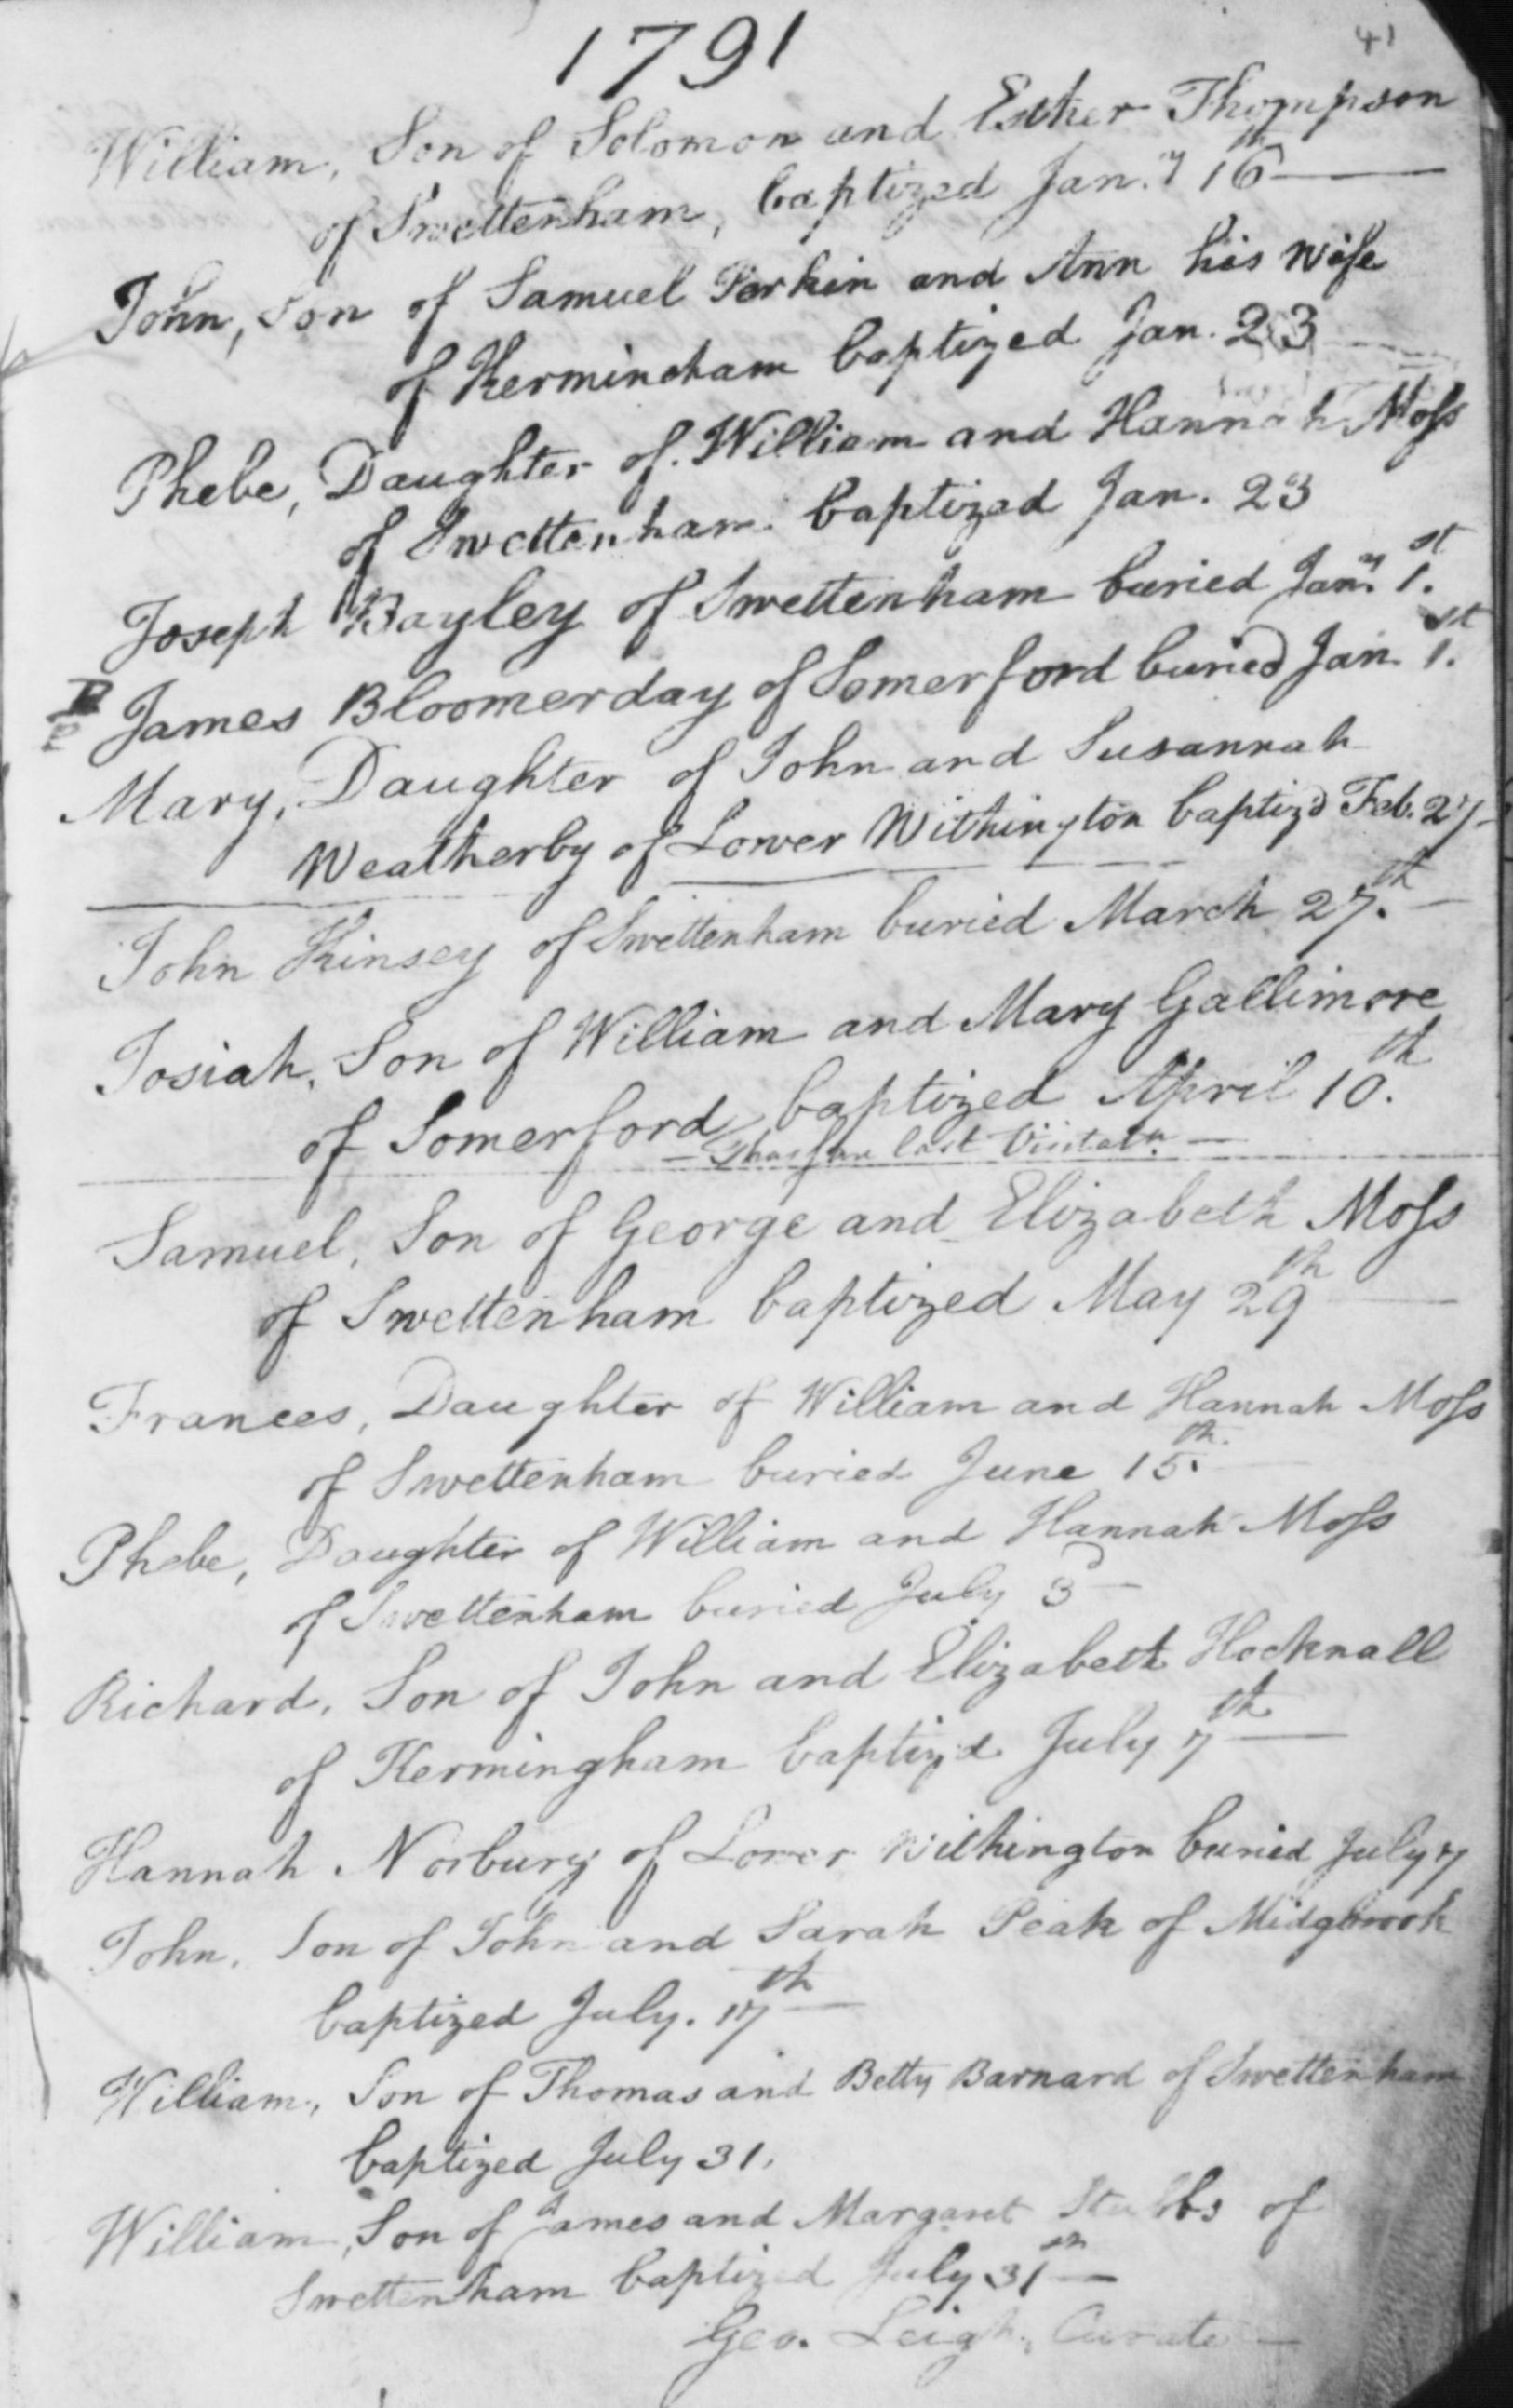 41
1791
William, Son of Solomon and Esther Thompson
of Swettenham, baptized Jan.y 16th
John, Son of Samuel Perkin and Ann his wife
of Kermincham baptized Jan. 23
Phebe, Daughter of William and Hannah Moſs
of Swettenham baptized Jan. 23
Joseph Bayley of Swettenham buried Jany. 1.st
James Bloomerday of Somerford buried Jan. 1.st
Mary, Daughter of John and Susannah
Weatherby of Lower Withington baptiz'd Feb. 27
John Kinsey of Swettenham buried March 27.th
Josiah, Son of William and Mary Gallimore
of Somerford, baptized April 10.th
Thus far last Visitatn.
Samuel, Son of George and Elizabeth Moſs
of Swettenham baptized May 29th
Frances, Daughter of William and Hannah Moſs
of Swettenham buried June 15.th
Phebe, Daughter of William and Hannah Moſs
of Swettenham buried July 3d
Richard, Son of John and Elizabeth Hocknall
of Kermingham baptiz'd July 7th
Hannah Norbury of Lower Withington buried July 7
John, Son of John and Sarah Peak of Midgbrook
baptized July. 17th
William, Son of Thomas and Betty Barnard of Swettenham
baptized July 31.
William, Son of James and Margaret Stubbs of
Swettenham baptized July 31st
Geo. Leigh, Curate